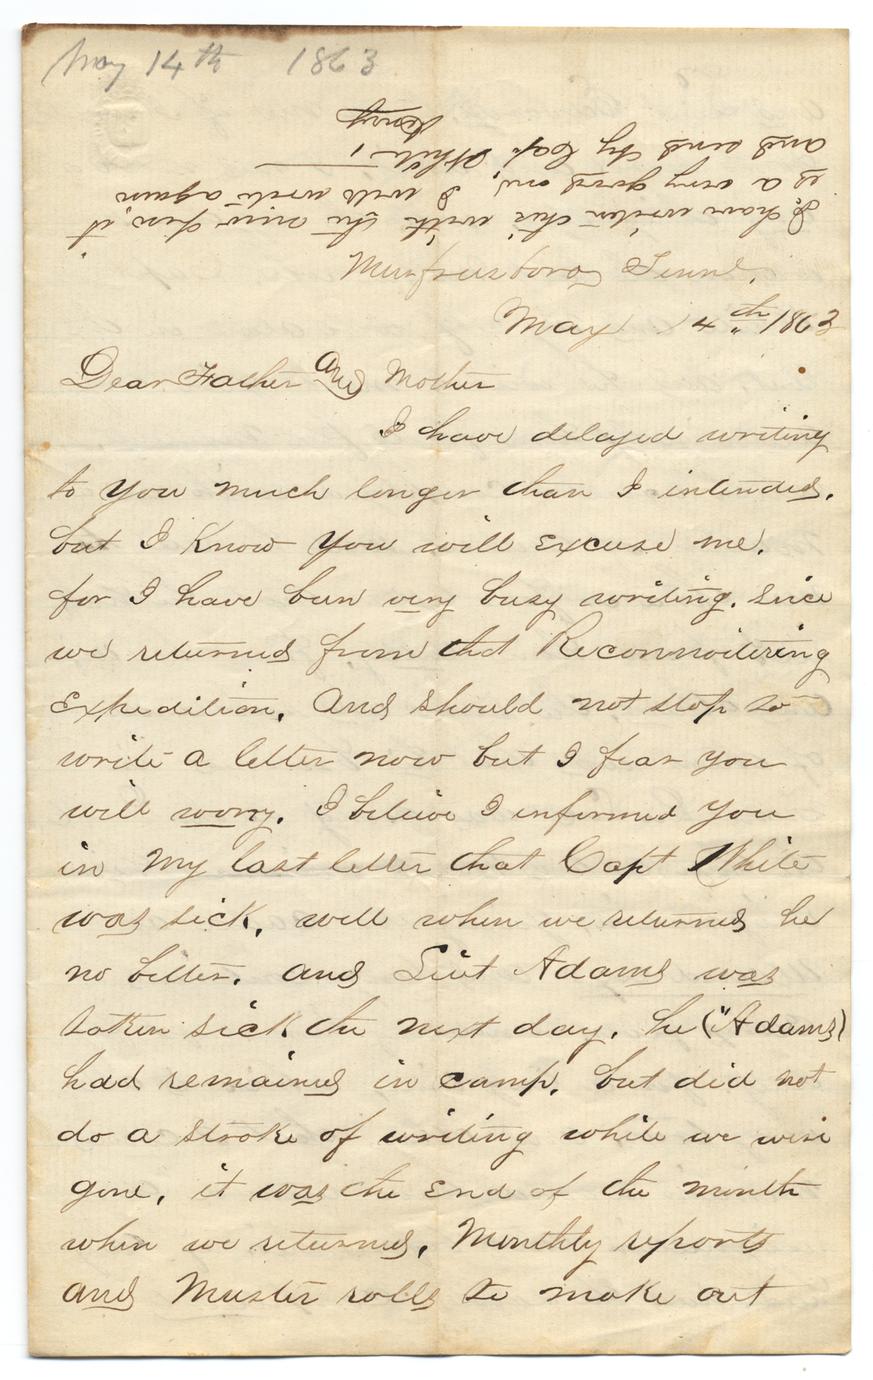 May 14th 1863
I have writen this with the new Pen, it
is a very good one, I will write again
and send by Cap. White
Murfreesboro Tenne.
May 14th 1863
Dear Father and Mother
I have delayed writing
to you much longer than I intended.
but I know you will excuse me.
for I have been very busy writing. since
we returned from that Reconnoitering
Expedition. And should not stop to
write a letter now but I fear you
will worry. I believe I informed you
in my last letter that Capt White
was sick. well when we returned he
no better. and Liut Adams was
taken sick the next day. he ("Adams)
had remained in camp. but did not
do a stroke of writing while we were
gone. it was the End of the month
when we returned. Monthly reports
and Muster rolls to make out